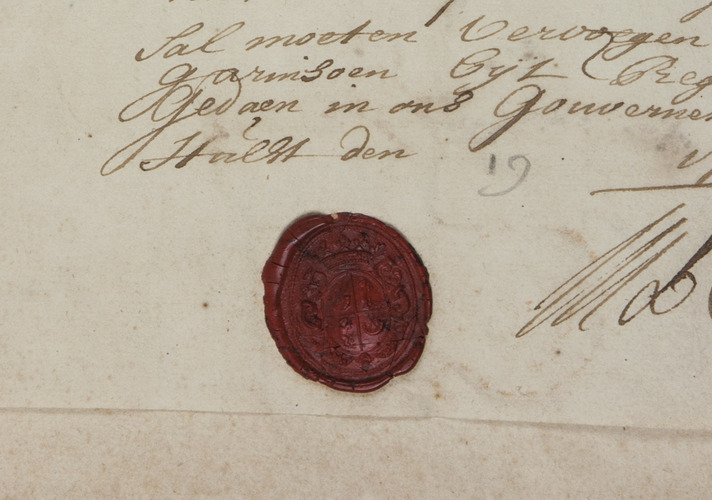 Sal moeten Vervoegen
garinsoen bijt Reg
Gedaen in ons Gouvernem
Hulst den 19